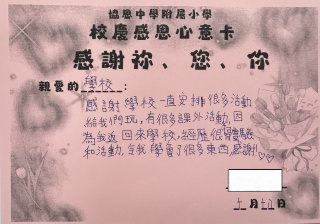 協恩中學附屬小學
校慶感恩心意卡
感謝祢、您、你
親愛的 學校:
感謝學校一直安排很多活動
給我們玩,有很多課外活動,因
為我返回來學校,經歷很體驗
和活動,令我學會了很多東西,感謝!♡♡
月 日